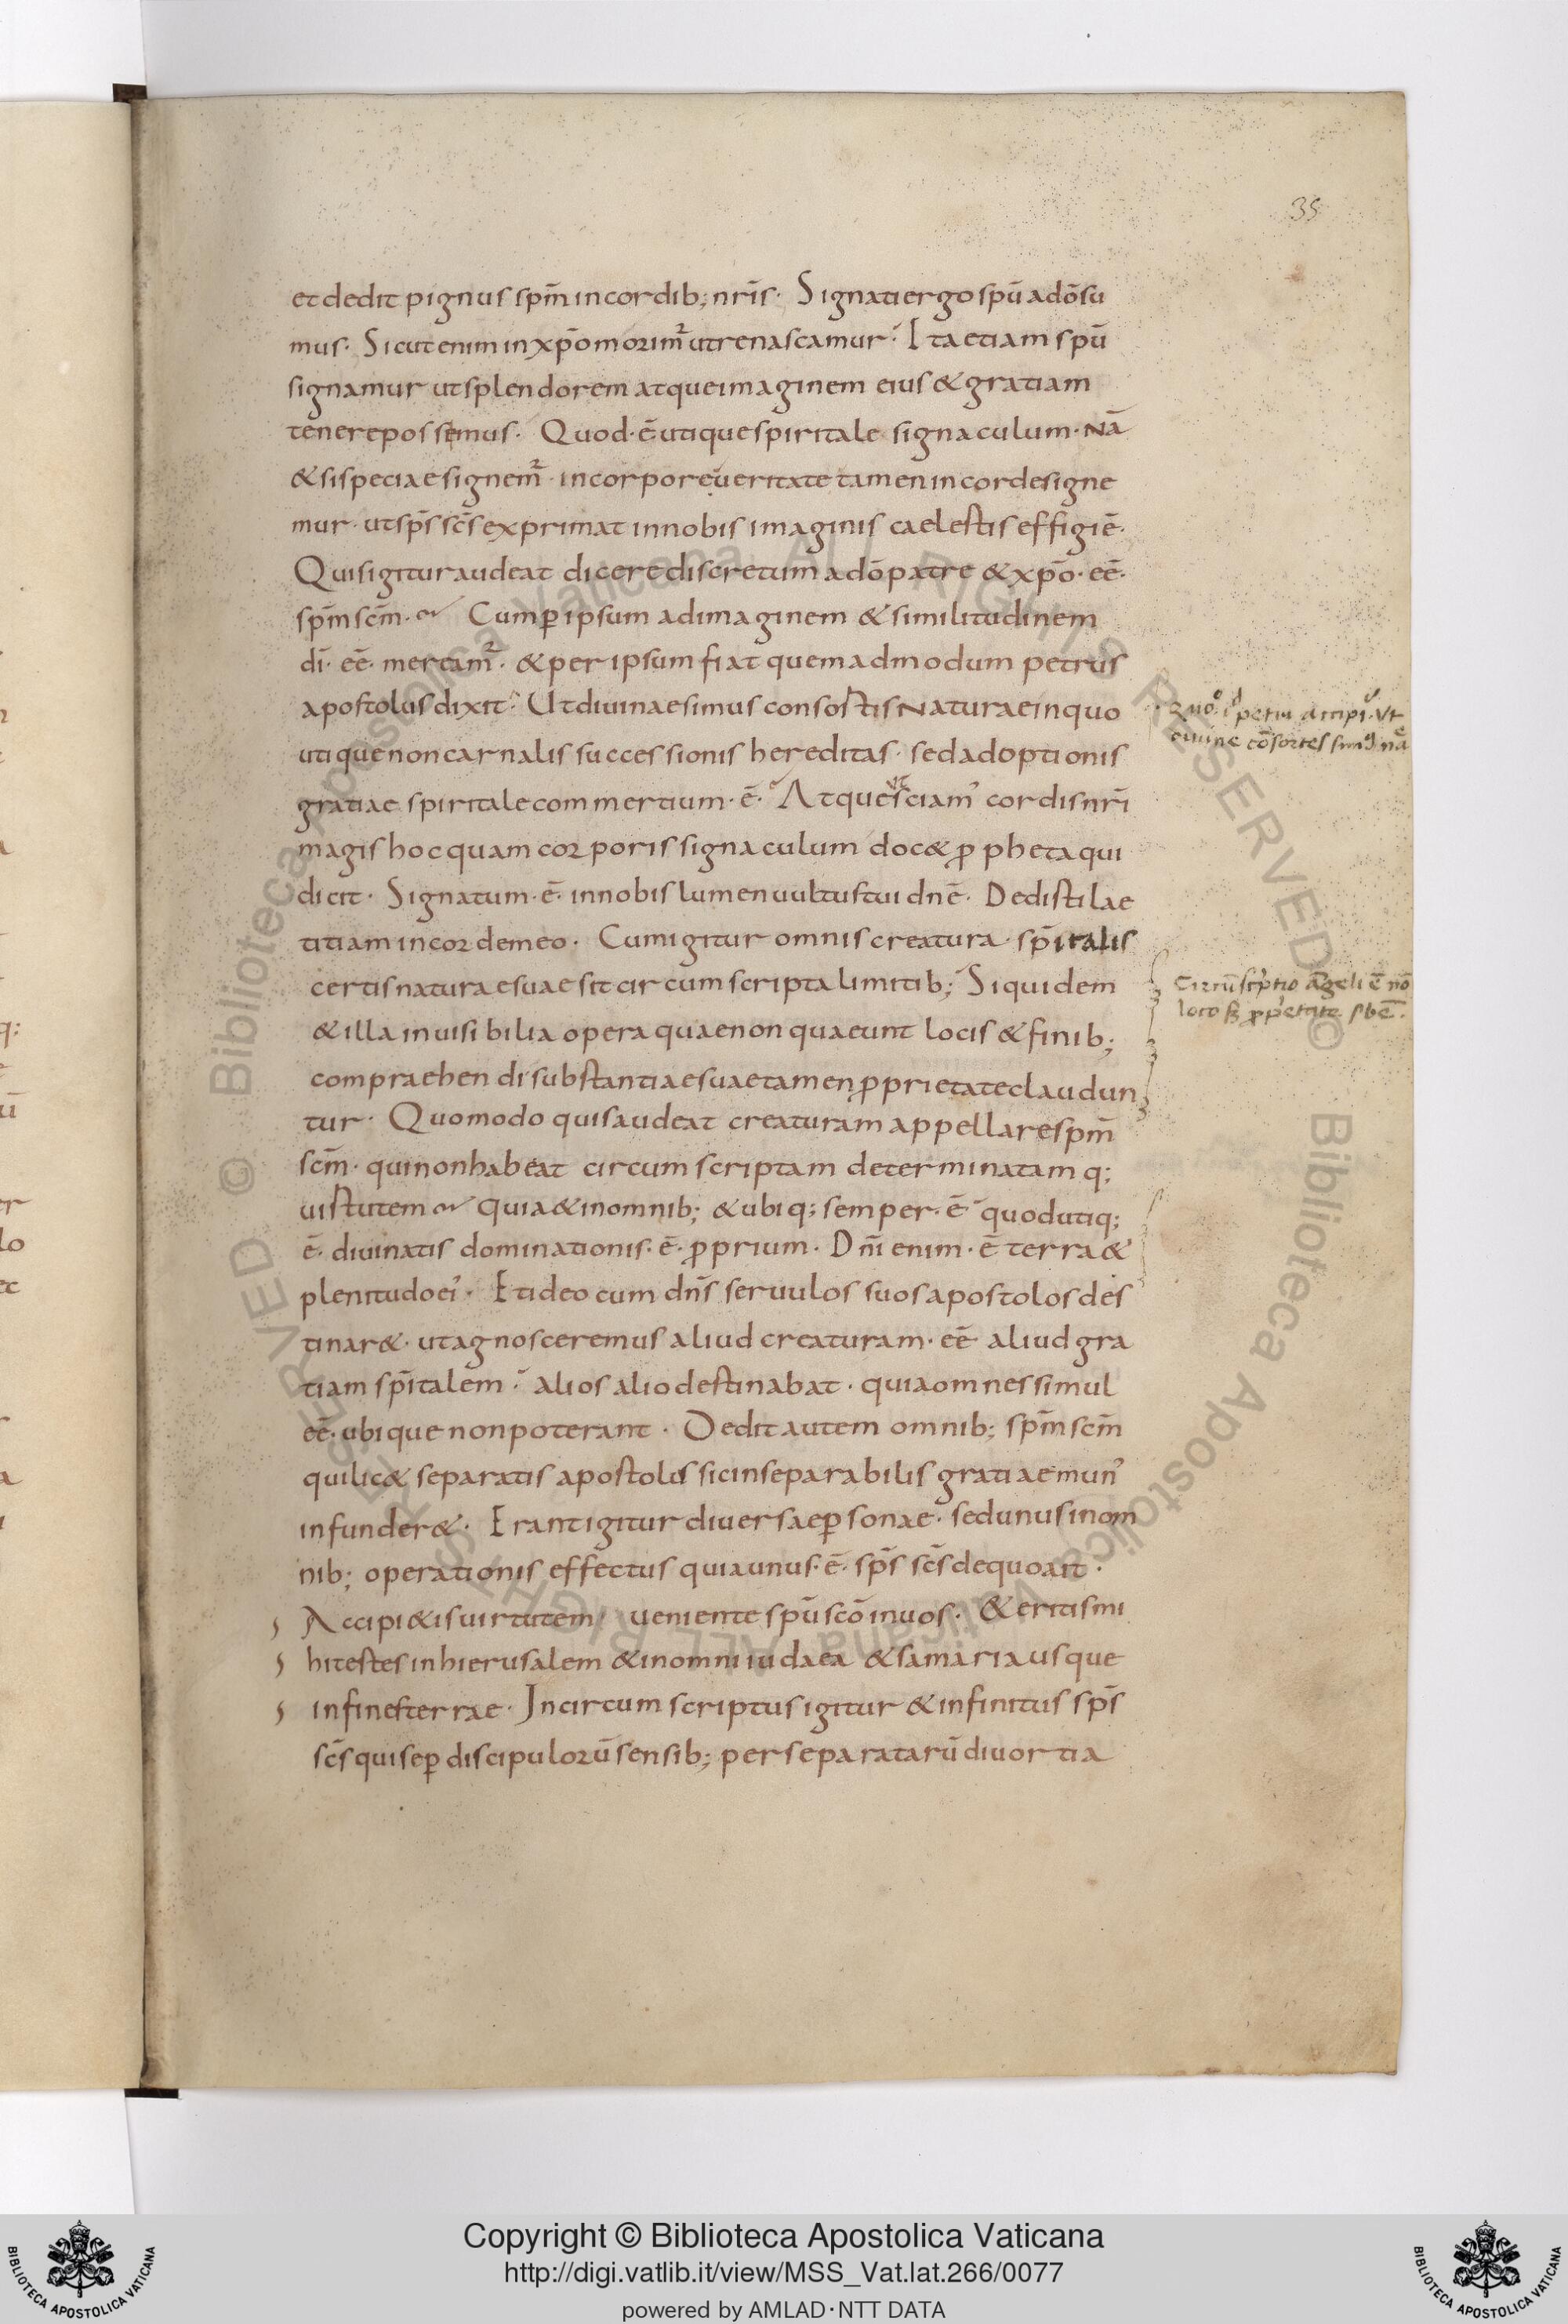 35
et dedit pignus spm̄ in cordib; nrīs· Signati ergo spū a dō su
mus· Sicut enim in xp̄o morimur̄ ut renascamur· Ita etiam spū
signamur ut splendorem atque imaginem eius & gratiam
tenere possemus· Quod·ē· utique spiritale signaculum· Nā
& si speciae signem̄· in corpore ueritate tamen in corde signe
mur· ut sp̄s sc̄s exprimat in nobis imaginis caelestis effigiē·
Quis igitur audeat dicere discretum a dō patre & xp̄o· eē·
spm̄ scm̄· Cum ꝑ ipsum ad imaginem & similitudinem
dī· eē· mereamr̄· & per ipsum fiat quemadmodum petrus
apostolus dixit· Ut diuinae simus consortis Naturae in quo
utique non carnalis successionis hereditas· sed adoptionis
gratiae spiritale commertium·ē· Atque ut sciam' cordis nrī
magis hoc quam corporis signaculum doc& ꝓpheta qui
dicit· Signatum·ē· in nobis lumen uultus tui dnē· Dedisti lae
titiam in corde meo· Cum igitur omnis creatura sp̄italis
certis naturae suae sit circumscripta limitib; Siquidem
& illa inuisibilia opera quae non quaeunt locis & finib;
compraehendi substantiae suae tamen ꝓprietate claudun
tur· Quomodo quis audeat creaturam appellare spm̄
scm̄· qui non habeat circumscriptam determinatamq;
uirtutem quia & in omnib; & ubiq; semper·ē· quod utiq;
ē· diuinatis dominationis·ē· ꝓprium· Dnī enim·ē terra &
plenitudo ei'· Et ideo cum dn̄s seruulos suos apostolos des
tinar&· ut agnosceremus aliud creaturam· eē aliud gra
tiam sp̄italem· alios alio destinabat· quia omnes simul
eē· ubique non poterant· Dedit autem omnib; spm̄ scm̄
qui lic& separatis apostolis sic inseparabilis gratiae mun'
infunder&· Erant igitur diuersae ꝑsonae· sed unus in om
nib; operationis effectus quia unus·ē· sp̄s sc̄s de quo ait·
Accipi&is uirtutem ueniente spū scō in uos· & eritis mi
hi testes in hierusalem & in omni iudaea & samaria usque
in fines terrae· Incircumscriptus igitur & infinitus sp̄s
sc̄s qui se ꝑ discipulorū sensib; per separatarū diuortia
Circūscriptio āgeli ē nō
loco
© Biblioteca Apostolica Vaticana ALL RIGHTS RESERVED
© Biblioteca Apostolica Vaticana ALL RIGHTS RESERVED
Copyright © Biblioteca Apostolica Vaticana
http://digi.vatlib.it/view/MSS_Vat.lat.266/0077
powered by AMLAD·NTT DATA
BIBLIOTECA APOSTOLICA VATICANA
BIBLIOTECA APOSTOLICA VATICANA